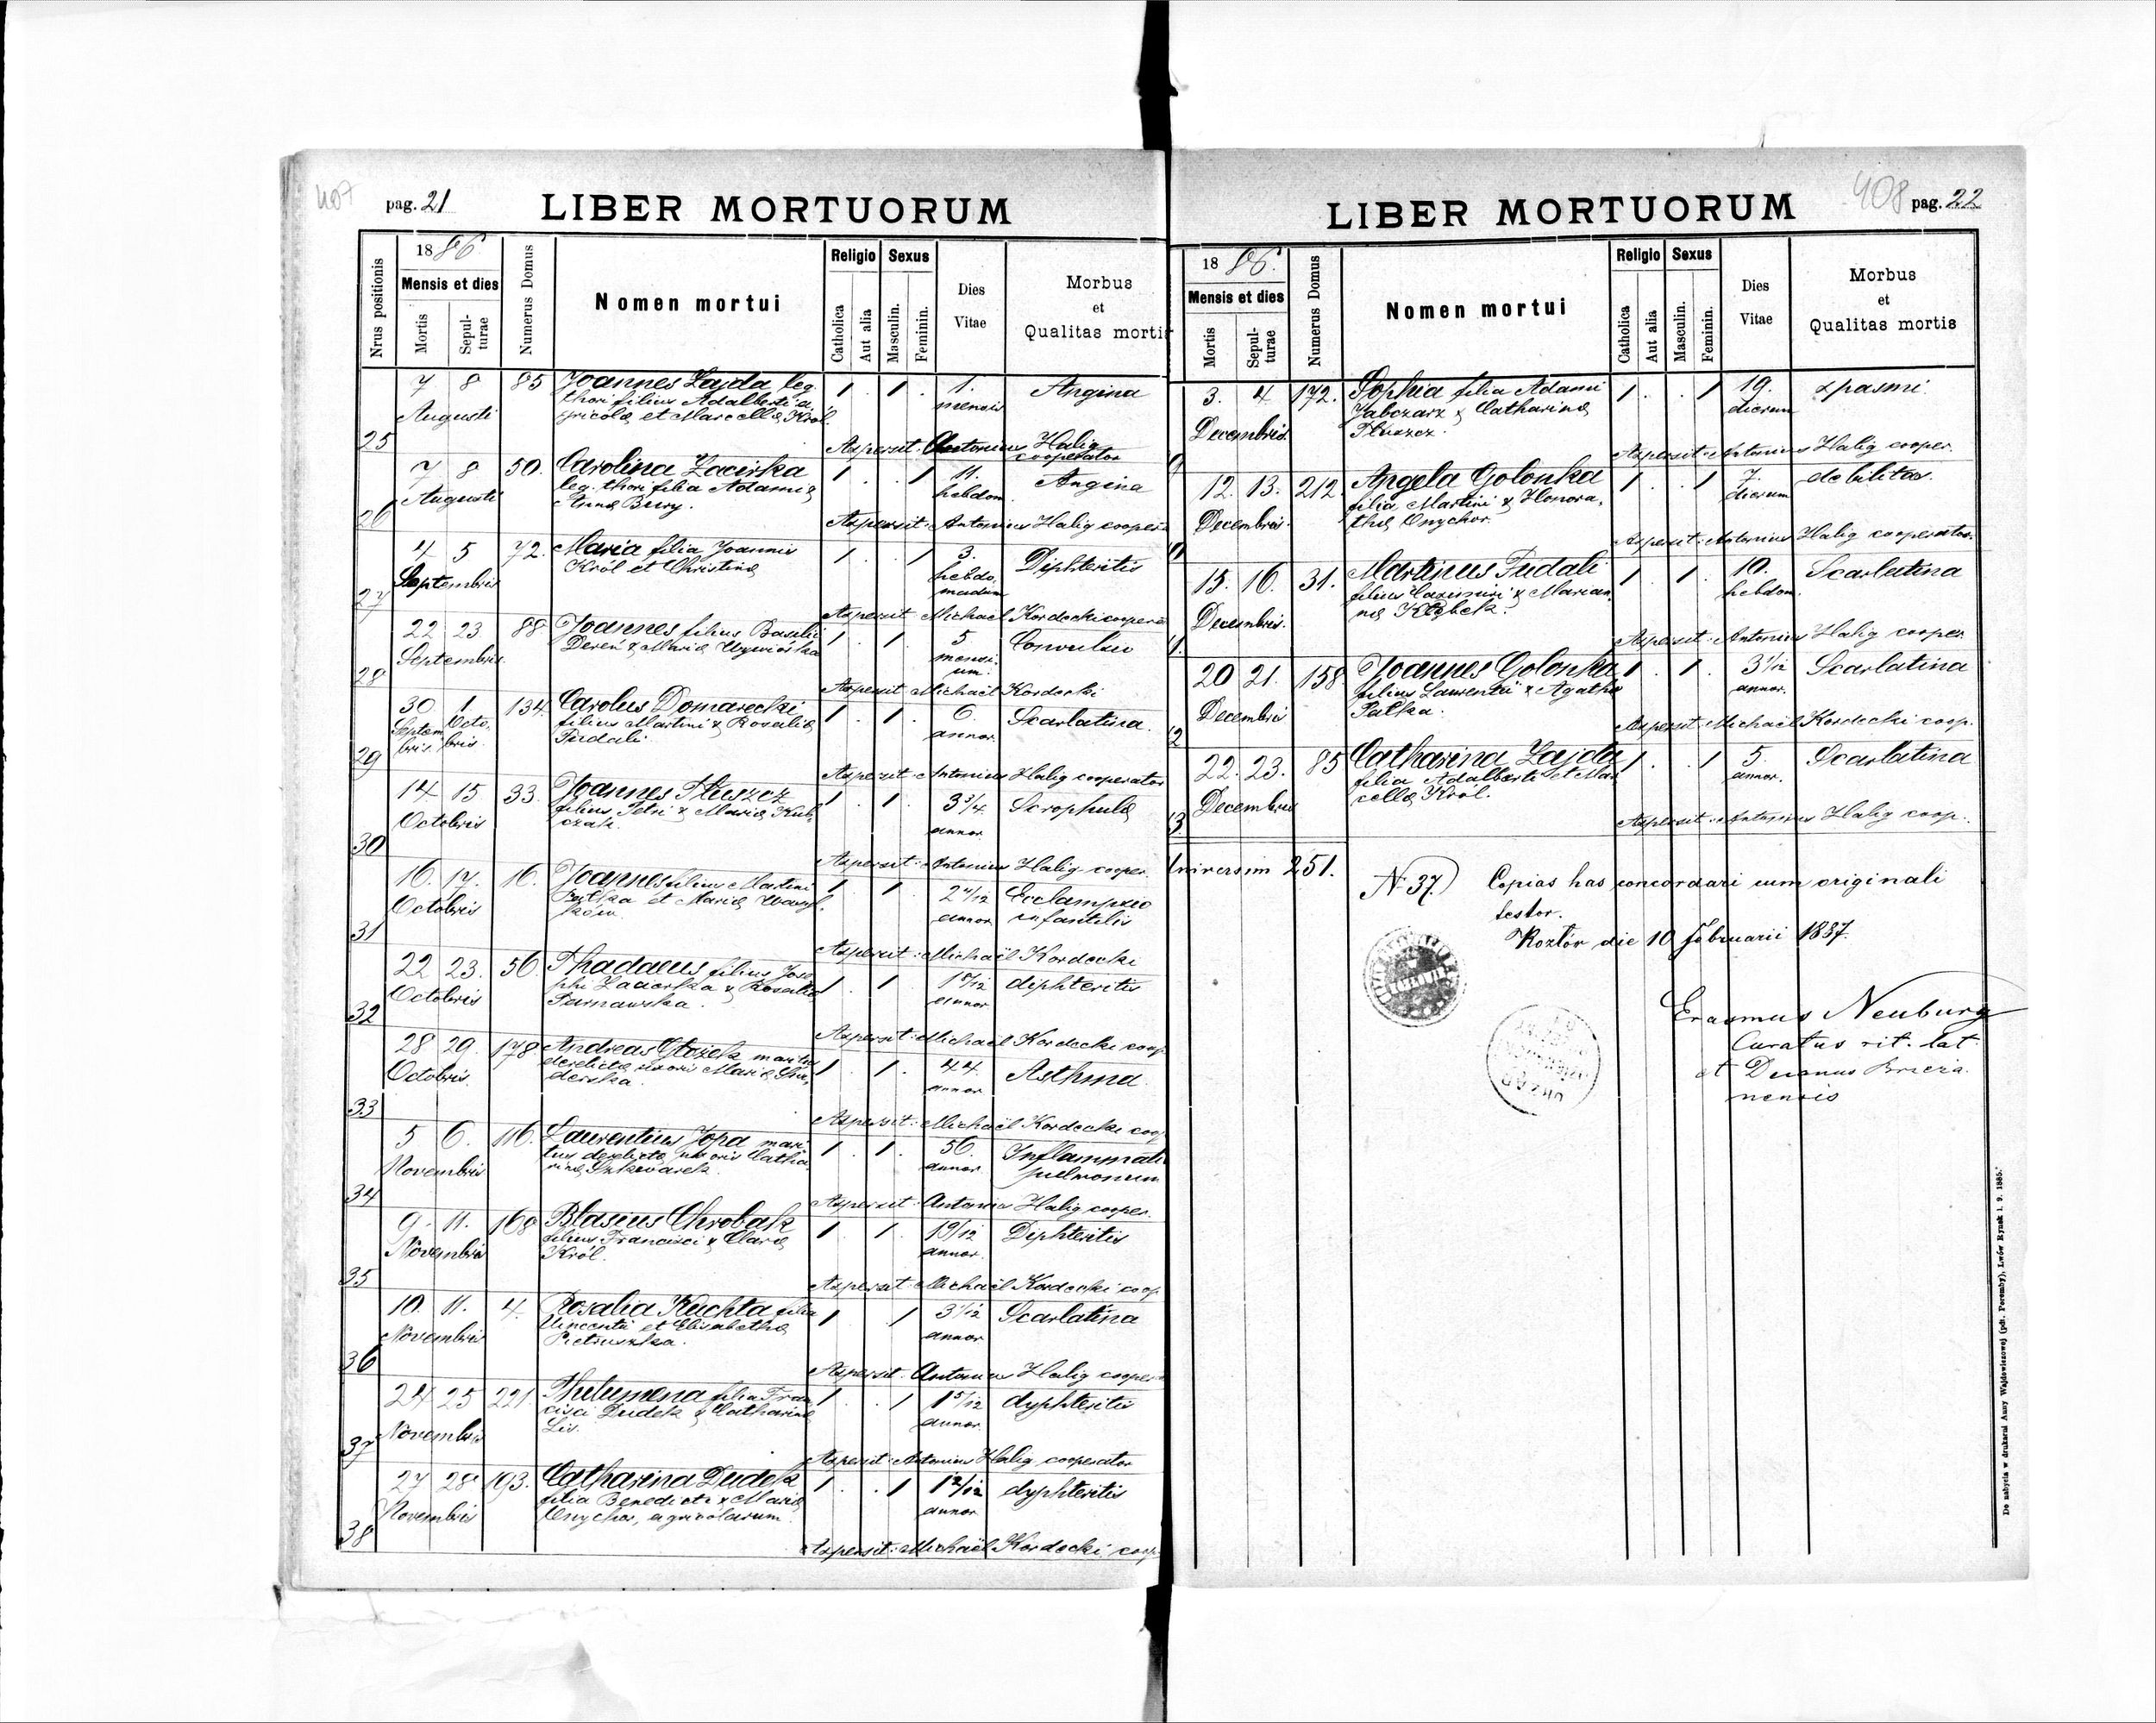 407
pag. 21
LIBER MORTUORUM
Nrus positionis
1886.
Mensis et dies
Mortis
Sepul-
turae
Numerus Domus
Nomen mortui
Religio
Catholica
Aut alia
Sexus
Masculin.
Feminin.
Dies
Vitae
Morbus
et
Qualitas mortis
25
7 8 85 Joannes Zajda leg. 1 . 1 . 1. Angina
Augusti thori filius Adalberti a mensis
gricolæ et Marcellæ Król.
Aspersit: Antonius Halig
cooperator
26
7 8 50. Carolina Zacirka 1 . . 1 11. Angina
Augusti leg. thori filia Adami & hebdom.
Annæ Bury.
Aspersit: Antonius Halig coopera
27
4 5 72. Maria filia Joannis 1 . . 1 3. Diphteritis
Septembris Król et Christinæ hebdo
madum
Aspersit Michaël Kordecki coopera
28
22 23 88 Joannes filius Basilii 1 . 1 . 5
Septembris Dereń & Mariæ mensi
um.
Aspersit Michaël Kordecki
29
30 1 134. Carolus Domarecki 1 . 1 . 6. Scarlatina.
Septem Octo- filius Martini & Rosaliæ annor.
bris. bris. Fudali.
Aspersit: Antonius Halig cooperator
30
14 15 33. Joannes Pluszcz 1 . 1 . 3 3/4 Scrophulæ
Octobris filius Petri & Mariæ Kub- annor.
czak.
Aspersit: Antonius Halig cooper.
31
16. 17. 16. Joannes filius Martini 1 . 1 . Ecclampsio
Octobris Patka et Mariæ annor infantilis
Aspersit: Michaël Kordecki
32
22 23. 56. Thadaeus filius Jose 1 . 1 . diphteritis
Octobris phi & Rosaliæ annor
Tarnawska.
Aspersit: Michaël Kordecki coop
33
28 29. 178 Andreas maritus 1 . 1 . 44. Asthma
Octobris. derelictæ uxoris Mariæ annor
Aspersit: Michaël Kordecki coop
34
5 6. 116. Laurentius Jopa mari 1 . 1 . 56. Inflammatio
Novembris tus derelictæ uxoris Catha annor. pulmonum
rinæ
Aspersit: Antonius Halig cooper.
35
9. 11. 168 Blasius Chrobak 1 . 1 . Diphteritis
Novembris filius Francisci & Claræ annor.
Król.
Aspersit Michaël Kordecki coop.
36
10. 11. 4. Rosalia Kuchta filia 1 . 1 3 1/12 Scarlatina
Novembris Vincentii et Elisabethæ annor.
Pietruszka.
Aspersit: Antonius Halig cooper
37
24 25 221. Philumena filia Fran 1 . . 1 1 5/12 dyphteritis
Novembris cisci Dudek & Catharinæ annor.
Lis.
Aspersit: Antonius Halig cooperator
38
27 28 193. Catharina Dudek 1 . . 1 1 2/12 dyphteritis
Novembris filia Benedicti & Mariæ annor.
Onychor, agricolarum.
Aspersit: Michaël Kordecki coop.
408
pag. 22
LIBER MORTUORUM
1886.
Mensis et dies
Mortis
Sepul-
turae
Numerus Domus
Nomen mortui
Religio
Catholica
Aut alia
Sexus
Masculin.
Feminin.
Dies
Vitae
Morbus
et
Qualitas mortis
3. 4 172. Sophia filia Adami 1 . . 1 19. spasmi.
Decembris. & Catharinæ dierum
Pluszcz.
Aspersit: Antonius Halig cooper.
12. 13. 212. Angela Golonka 1 . . 1 7. debilitas.
Decembris. filia Martini & Honora- dierum
thæ Onychor.
Aspersit: Antonius Halig cooperator.
15. 16. 31. Martinus Fudali 1 . 1 . 10. Scarlatina
Decembris. filius Casimiri & Marian hebdom.
næ
Aspersit: Antonius Halig cooper.
20 21. 158. Joannes Golonka 1 . 1 . 3 1/12 Scarlatina
Decembris filius Laurentii & Agathæ annor.
Patka.
Aspersit: Michaël Kordecki coop.
22. 23. 85 Catharina Zajda 1 . . 1 5. Scarlatina
Decembris filia Adalberti et Mar annor.
cellæ Król.
Aspersit: Antonius Halig coop.
Universim 251.
N. 37.) Copias has concordari cum originali
testor.
Roztór die 10 Februarii 1887.
Erasmus Neuburg
Curatus rit. lat.
et Decanus Brzeza
nensis
Do nabycia w drukarni Anny Wajdowiczowej (pdt. Poremby), Lwów Rynek l. 9. 1885.